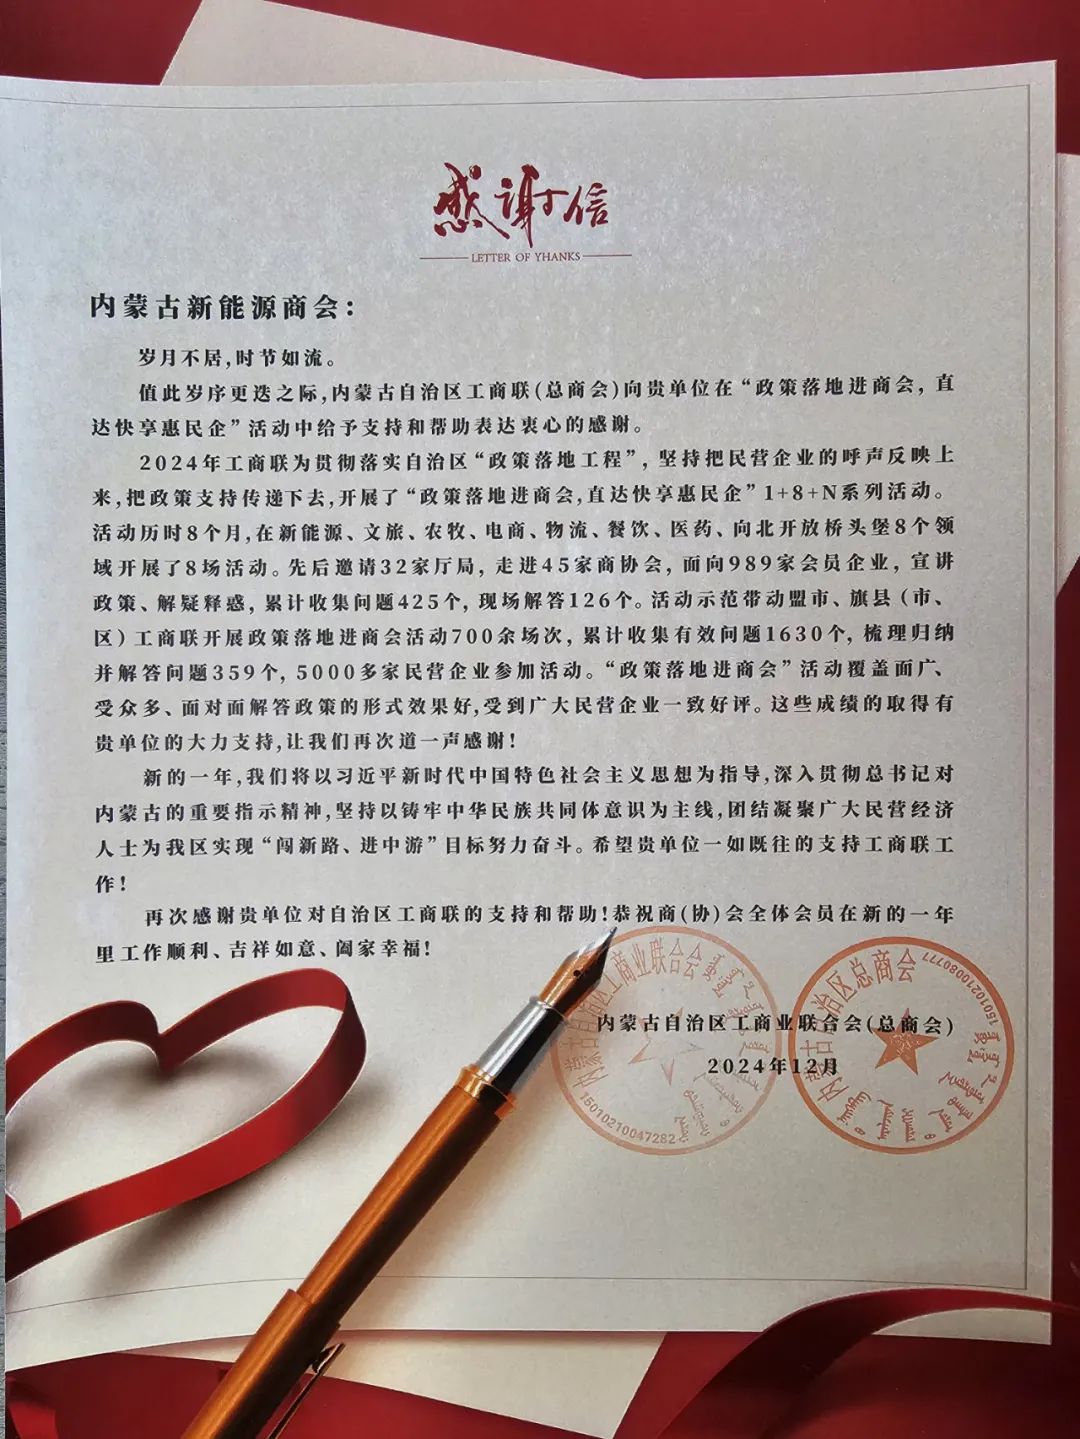 感谢信
LETTER OF YHANKS
内蒙古新能源商会：
岁月不居,时节如流。
值此岁序更迭之际,内蒙古自治区工商联(总商会)向贵单位在“政策落地进商会，直
达快享惠民企”活动中给予支持和帮助表达衷心的感谢。
2024年工商联为贯彻落实自治区“政策落地工程”，坚持把民营企业的呼声反映上
来,把政策支持传递下去,开展了“政策落地进商会,直达快享惠民企”1+8+N系列活动。
活动历时8个月,在新能源、文旅、农牧、电商、物流、餐饮、医药、向北开放桥头堡8个领
域开展了8场活动。先后邀请32家厅局，走进45家商协会，面向989家会员企业，宣讲
政策、解疑释惑，累计收集问题425个，现场解答126个。活动示范带动盟市、旗县（市、
区）工商联开展政策落地进商会活动700余场次，累计收集有效问题1630个，梳理归纳
并解答问题359个，5000多家民营企业参加活动。“政策落地进商会”活动覆盖面广、
受众多、面对面解答政策的形式效果好,受到广大民营企业一致好评。这些成绩的取得有
贵单位的大力支持,让我们再次道一声感谢!
新的一年,我们将以习近平新时代中国特色社会主义思想为指导,深入贯彻总书记对
内蒙古的重要指示精神,坚持以铸牢中华民族共同体意识为主线,团结凝聚广大民营经济
人士为我区实现“闯新路、进中游”目标努力奋斗。希望贵单位一如既往的支持工商联工
作!
再次感谢贵单位对自治区工商联的支持和帮助!恭祝商(协)会全体会员在新的一年
里工作顺利、吉祥如意、阖家幸福!
内蒙古自治区工商业联合会(总商会)
2024年12月
内蒙古自治区工商业联合会
15010210047282
内蒙古自治区总商会
15010210080777